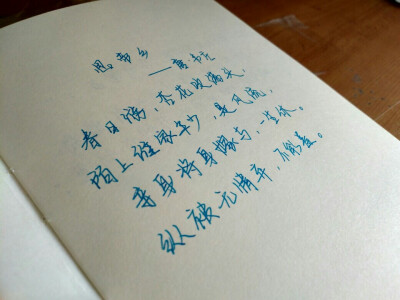 思帝乡
——唐·韦庄
春日游,杏花吹满头,
陌上谁家年少,足风流,
妾身将身嫁与,一生休。
纵被无情弃,不能羞。